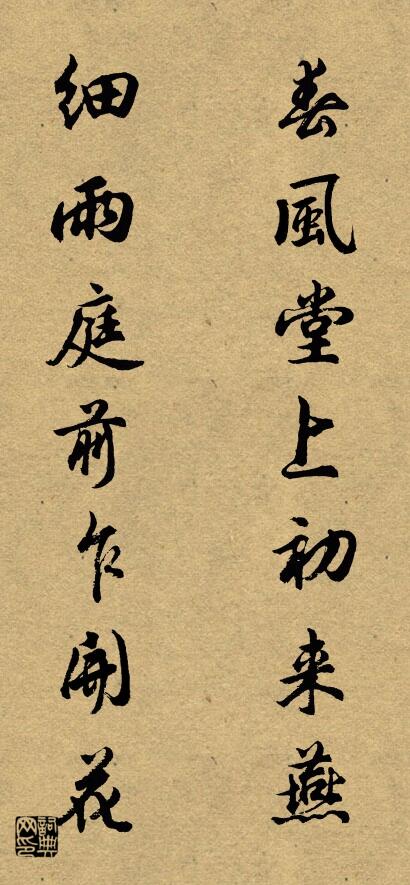 春風堂上初来燕
细雨庭前乍開花
詞典网印